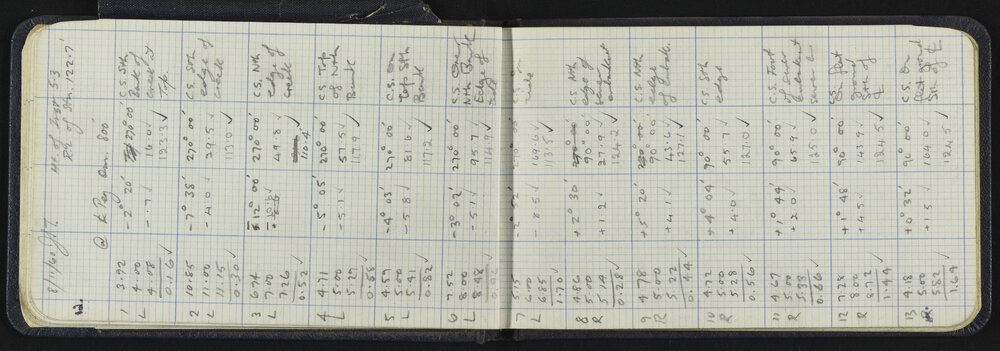 12.
8/11/60
Ht. of Inst 5.3
R.L. of Stn. 122.7'
@ Peg 800'
1 3.92 -2° 20' 270° 00' C.S. Sth
4.00 -.7 16.0 Bank of
L 4.08 123.3 Creek at
0.16 Top
2 10.85 -7° 38' 270° 00' C.S. Sth
11.00 -4.0 29.5 edge of
L 11.15 113.0 creek
0.30
3 6.74 -12° 00' 270° 00' C.S. Nth
7.00 49.8 edge of
L 7.26 110.4 creek
0.52
4 4.71 -5° 05' 270° 00' C.S. Top
5.00 -5.1 57.5 of Nth
L 5.29 117.9 Bank
0.58
5 4.59 -4° 03' 270° 00' C.S. on
5.00 -5.8 81.6 Top Sth
L 5.41 117.2 Bank
0.82
6 7.52 -3° 02' 270° 00' C.S. on
8.00 -5.1 95.7 Nth Bank
L 8.48 114.9 Edge of
0.96
7 5.15 -2° 52' 270° 00'
6.00 -8.5 169.6
L 6.85 113.5
1.70
8 4.86 +2° 30' 90° 00' C.S. Nth
5.00 +1.2 27.9 edge of
R 5.14 124.2
0.28
9 4.78 +5° 20' 90° 00' C.S. Nth
5.00 +4.1 43.6 edge
R 5.22 127.1
0.44
10 4.72 +4° 04' 90° 00' C.S. Sth
5.00 +4.0 55.7 edge
R 5.28 127.0
0.56
11 4.67 +1° 44' 90° 00' C.S. Foot
5.00 +2.0 65.9 of sewer
R 5.33 125.0
0.66
12 7.28 +1° 48' 90° 00' C.S.
8.00 +4.5 143.9
R 8.72 124.5
1.44
13 4.18 +0° 32' 90° 00' C.S. on
R 5.00 +1.5 164.0
5.82 124.5
1.64